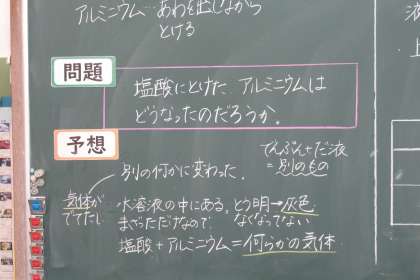 アルミニウム…あわを出しながら
とける
問題
塩酸にとけた アルミニウムは
どうなったのだろうか。
予想
別の何かに変わった。
でんぷん+だ液
=別のもの
気体が
でてたし
水溶液の中にある。
まざっただけなので
とう明→灰色
なくなってない
塩酸+アルミニウム=何らかの気体